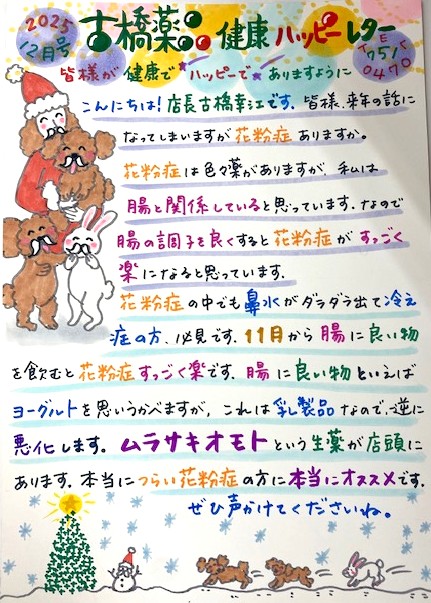 2025
12月号
古橋薬品 健康ハッピーレター
TEL
751-
0470
皆様が健康でハッピーでありますように
こんにちは!店長古橋幸江です。皆様、来年の話に
なってしまいますが花粉症ありますか。
花粉症は色々薬がありますが、私は
腸と関係していると思っています。なので
腸の調子を良くすると花粉症がすっごく
楽になると思っています。
花粉症の中でも鼻水がダラダラ出て冷え
症の方、必見です。11月から腸に良い物
を飲むと花粉症すっごく楽です。腸に良い物といえば
ヨーグルトを思いうかべますが、これは乳製品なので、逆に
悪化します。ムラサキオモトという生薬が店頭に
あります。本当につらい花粉症の方に本当にオススメです。
ぜひ声かけてくださいね。